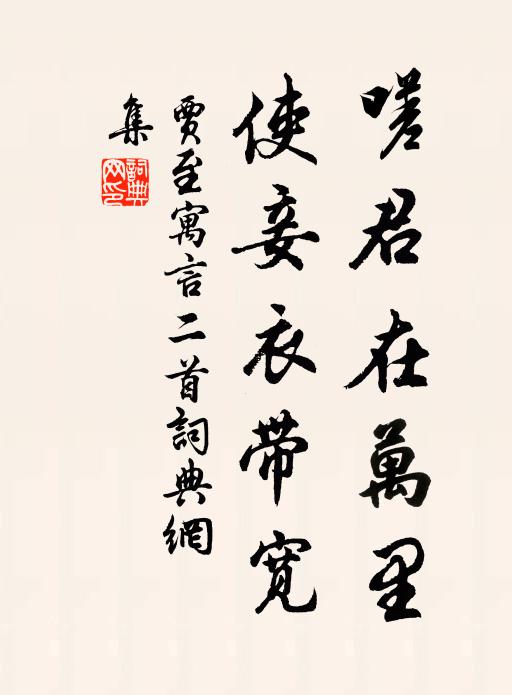 嗟君在萬里
使妾衣帶寬
賈至寓言二首詞典網
集
詞典
网印